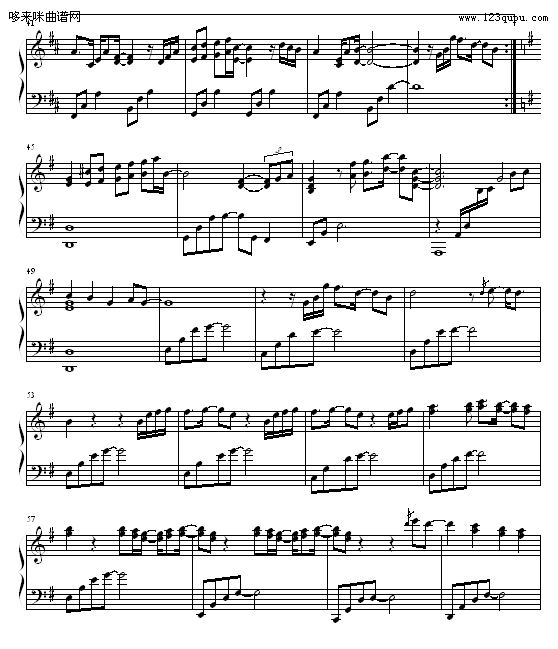 哆来咪曲谱网
www.123qupu.com
41
45
3
49
53
57